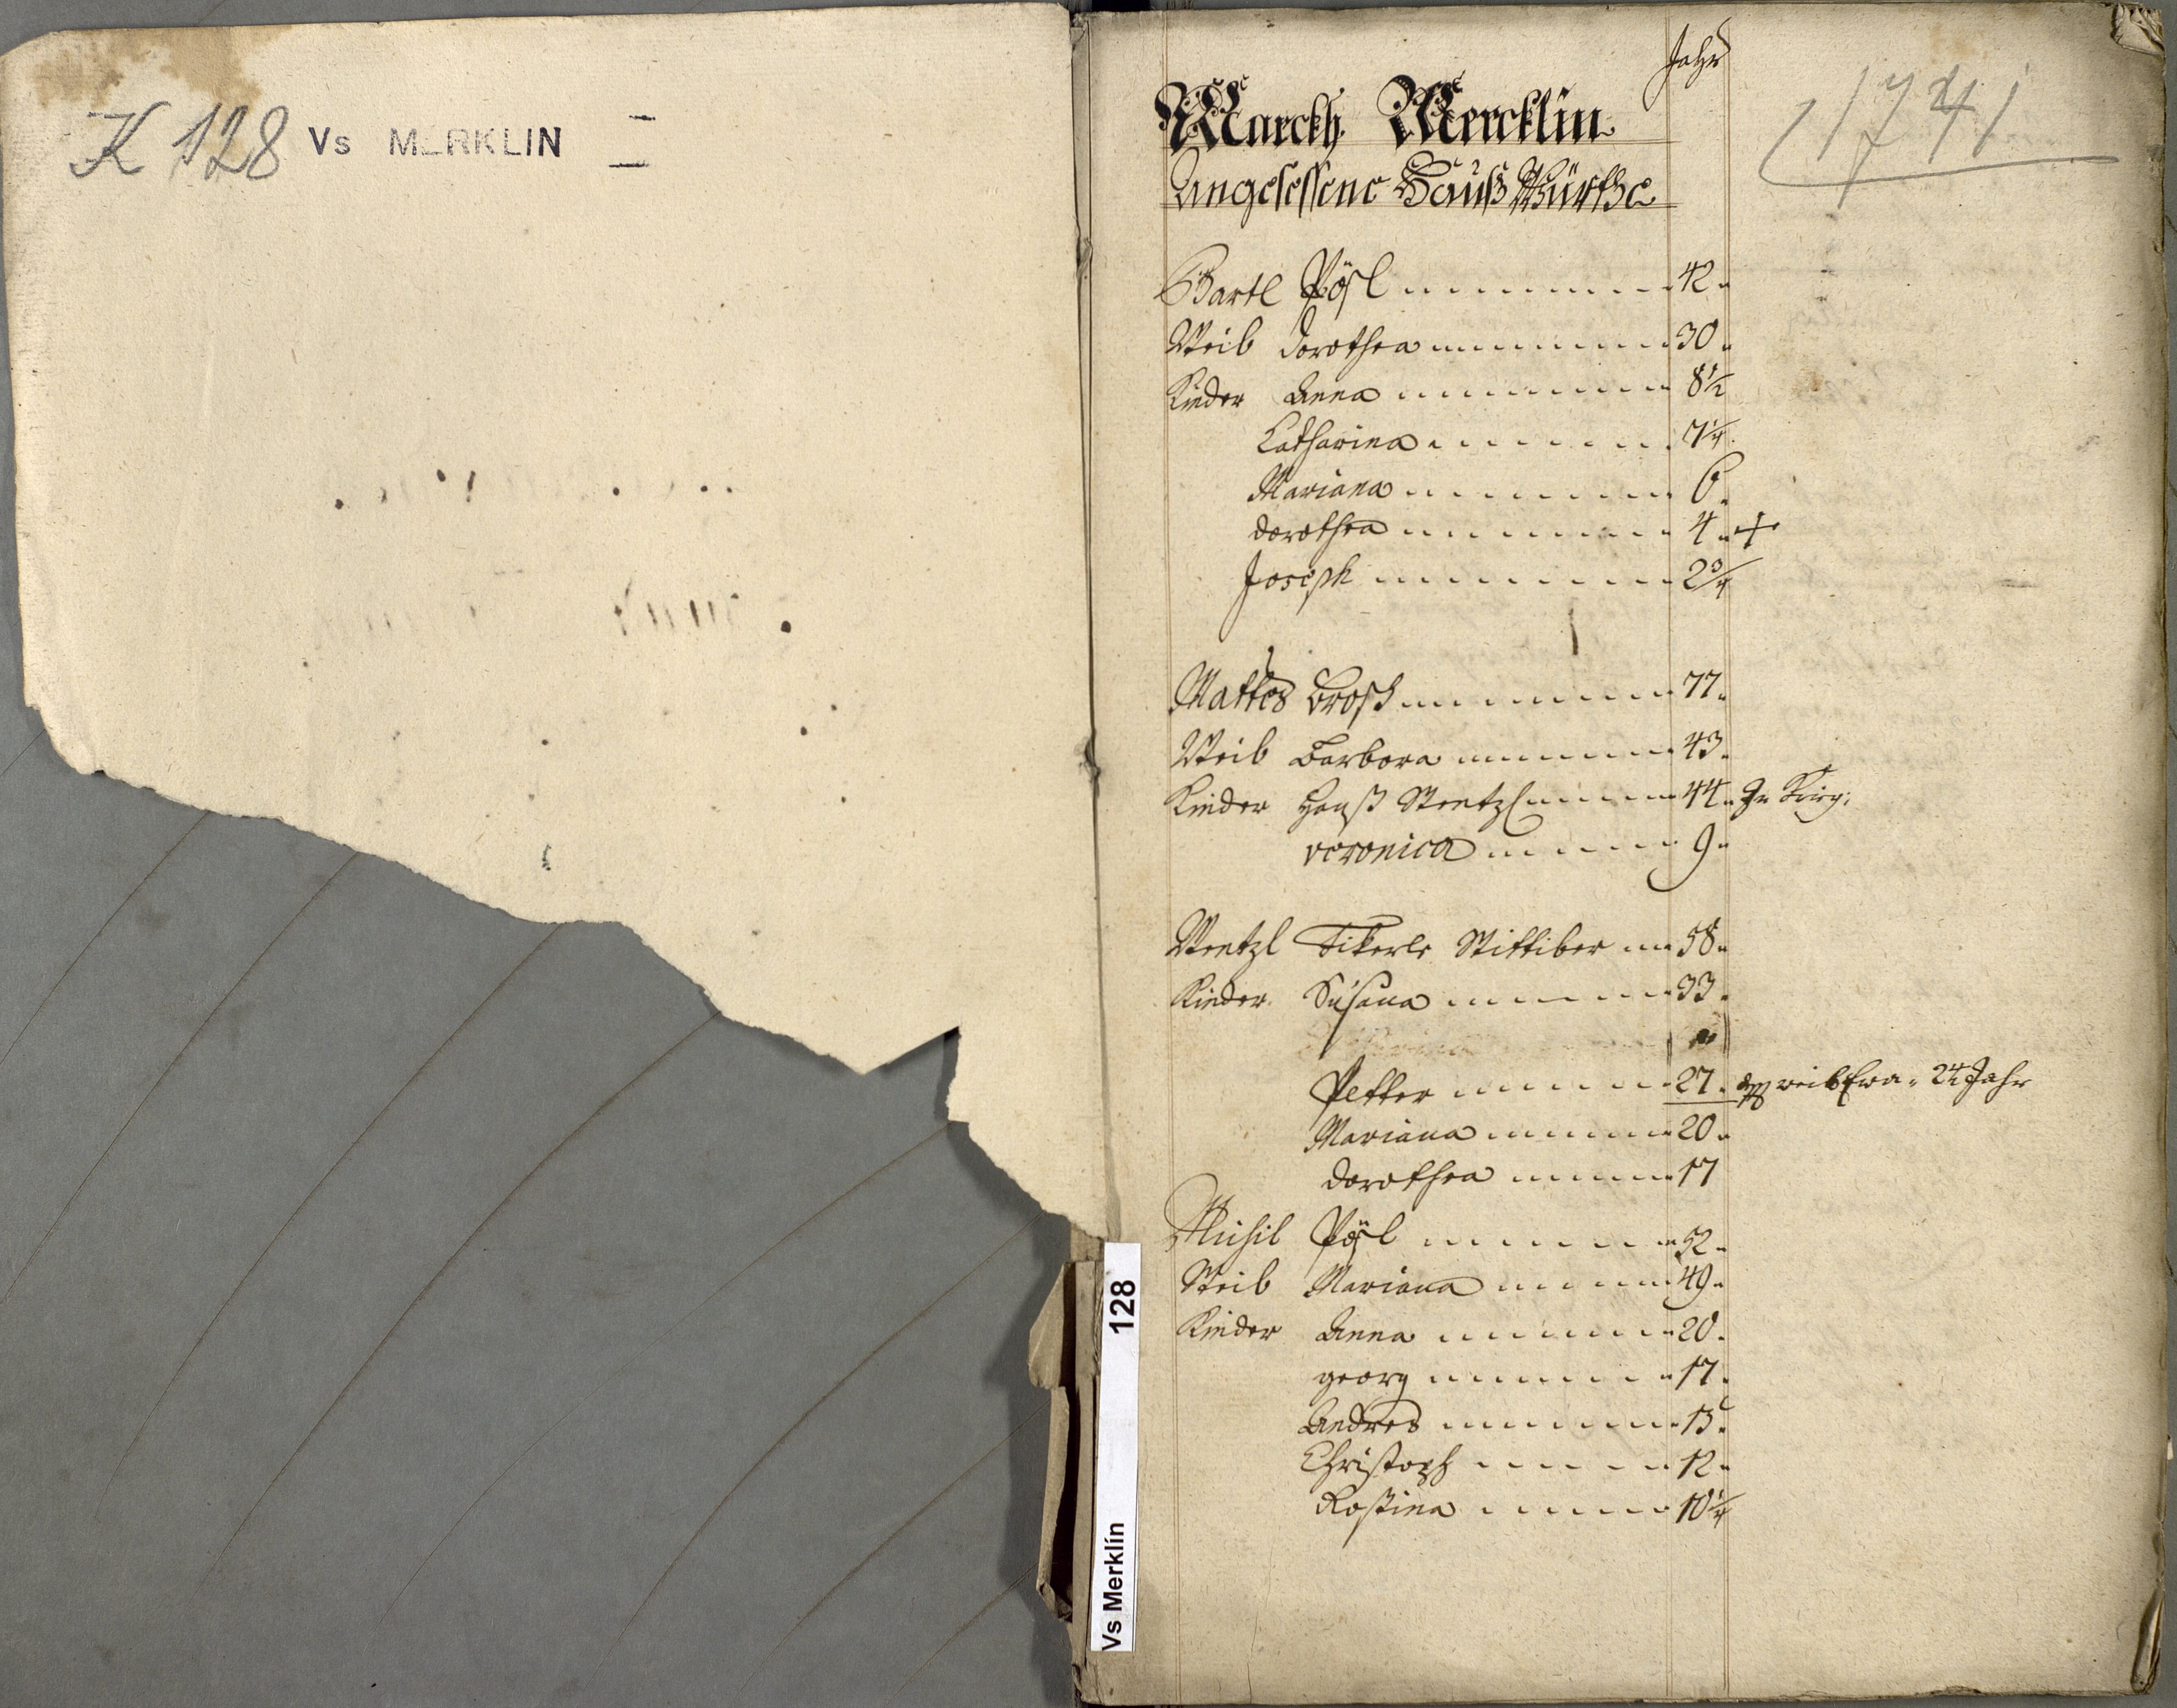 K 128 Vs MERKLIN
Jahr
1741
Marckh Mercklin
angesessene Hauß Würthe
Bartl Pösl 42
Weib Dorothea 30
Kinder Anna 8 1/2
Catharina 7 1/4
Mariana 6
Dorothea 4 +
Joseph 2 3/4
Mathes Brosch 77
Weib Barbora 43
Kinder Hanß Wentzl 44
Veronica 9
Wentzl 58
Kinder Susana 33
Petter 27 weib Eva 24 Jahr
Mariana 20
Dorothea 17
Michil Pösl 52
Weib Mariana 49
Kinder Anna 20
Georg 17
Andres 15
Christoph 12
Rosina 10 1/4
Vs Merklín 128